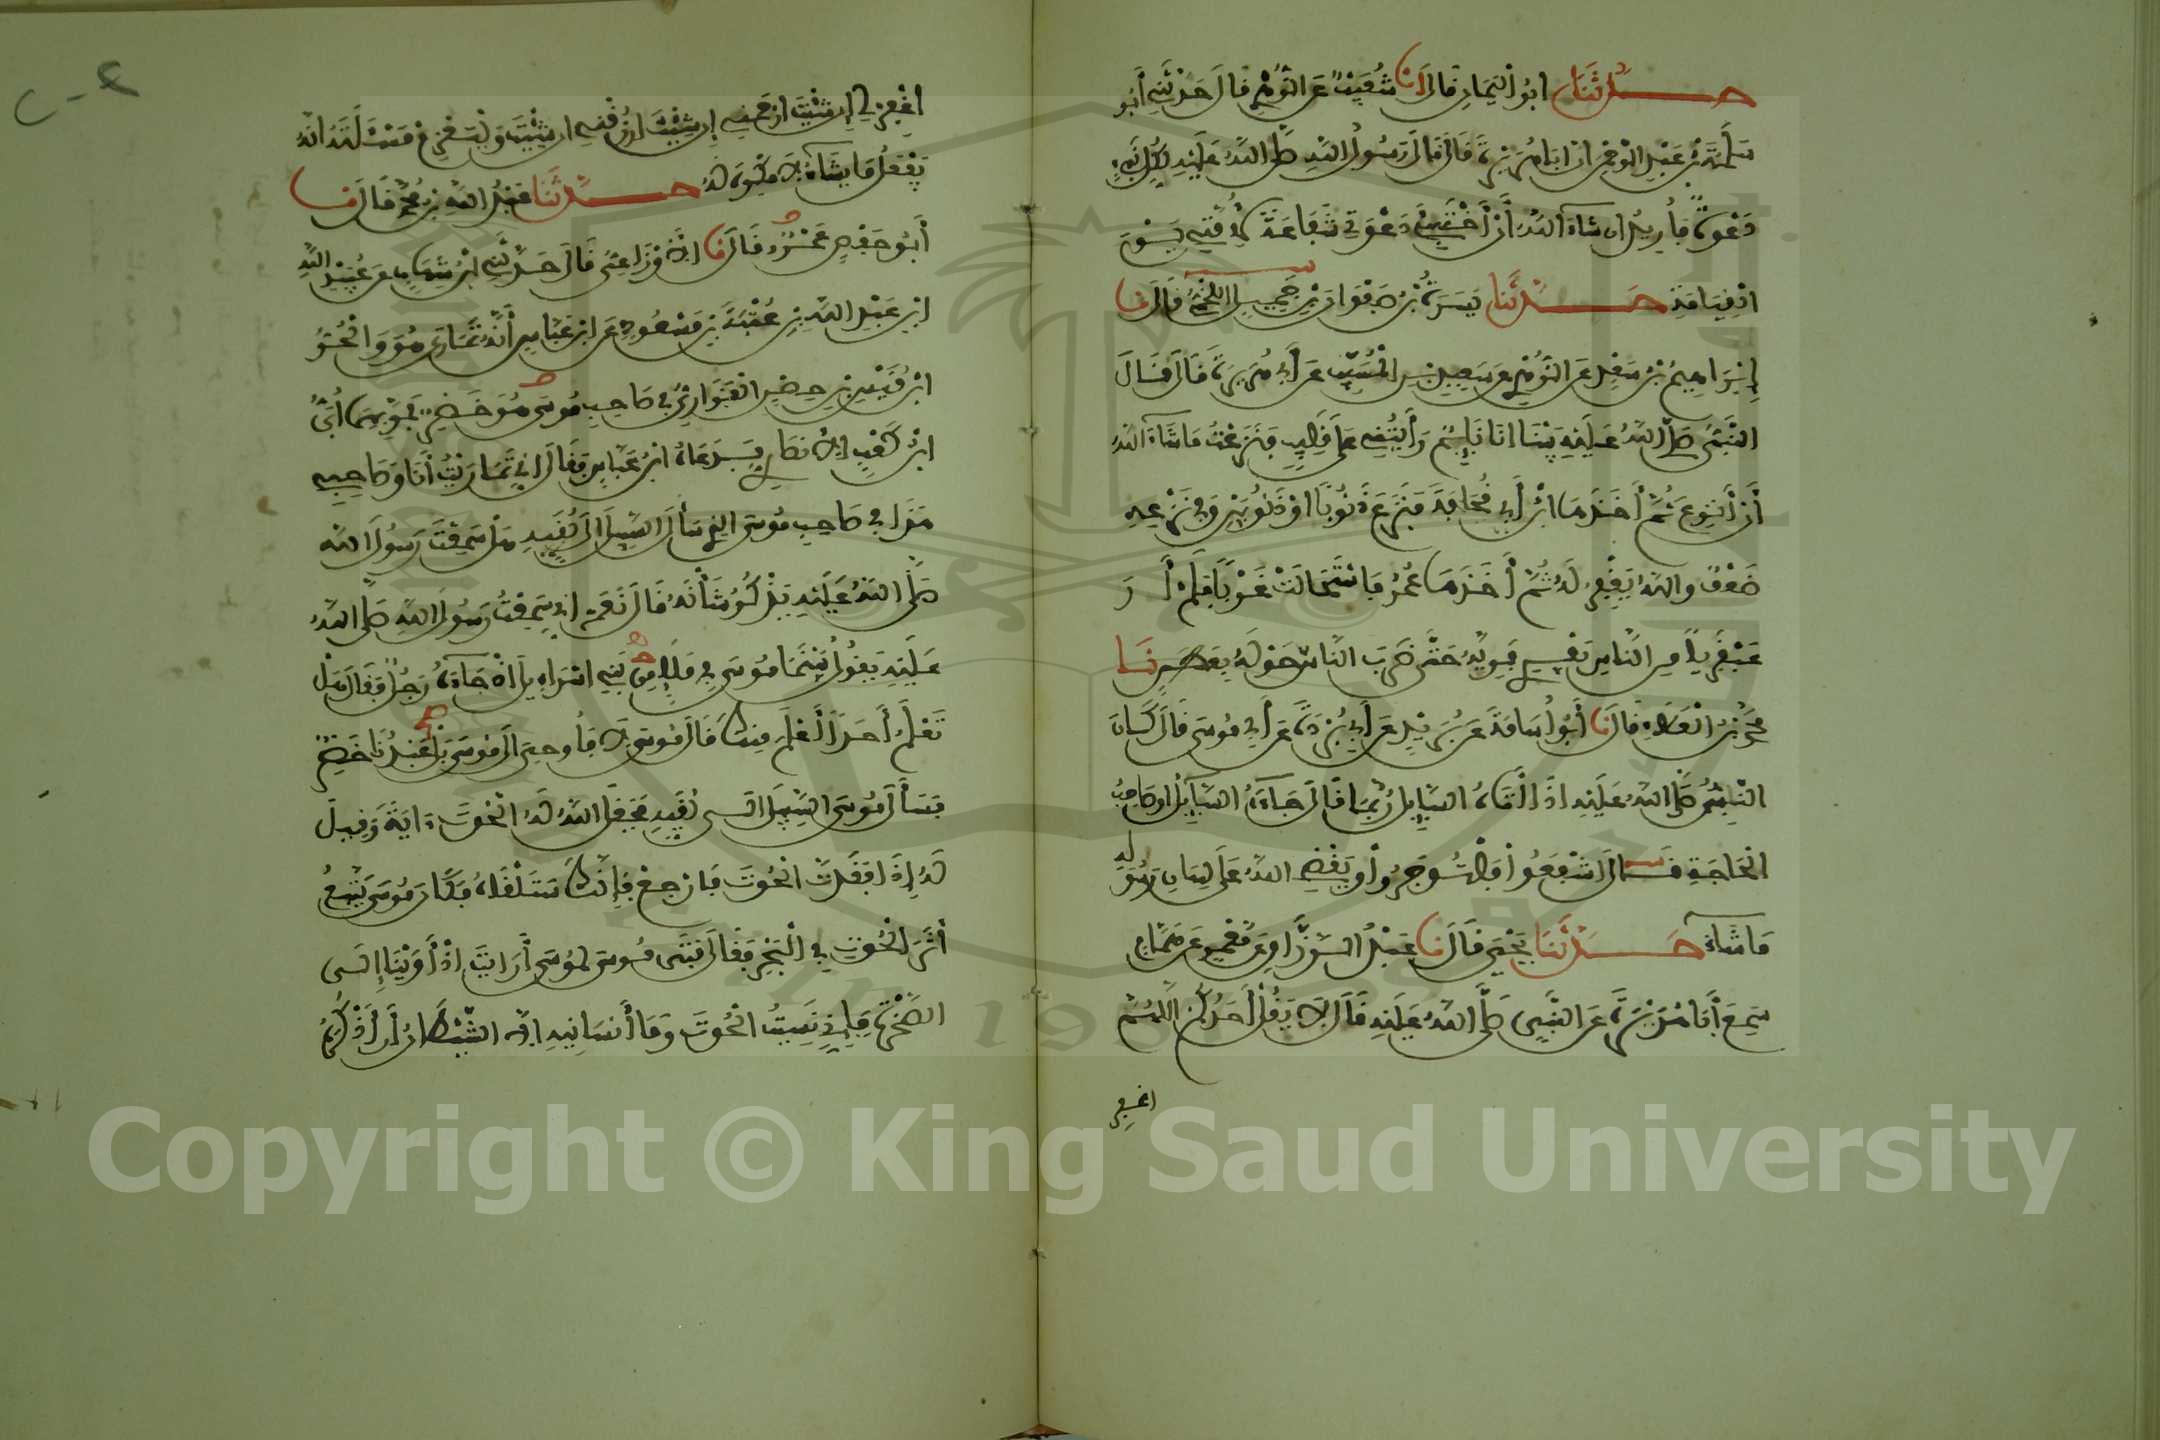 حدثنا ابو اليمان قال انا شعيب عن الزهري قال حدثني أبو
سلمة بن عبد الرحمن ان ابا هريرة قال قال رسول الله صلى الله عليه لكل نبي
دعوة فأريد ان شاء الله أن أختبي دعوتي شفاعة لأمتي يوم
القيامة حدثنا يسرة بن صفوان بن جميل اللخمي قال نا
إبراهيم بن سعد عن الزهري عن سعيد بن المسيب عن أبي هريرة قال قال
النبي صلى الله عليه بينا انا نايم رأيتني على قليب فنزعت ما شاء الله
أن أنزع ثم أخذها ابن أبي قحافة فنزع ذنوبا او ذنوبين وفي نزعه
ضعف والله يغفر له ثم أخذها عمر فاستحالت غربا فلم أر
عبقريا من الناس يفري فريه حتى ضرب الناس حوله بعطن نا
محمد بن العلاء قال نا أبو أسامة عن بريد عن أبي بردة عن أبي موسى قال كان
النبي صلى الله عليه اذا أتاه السايل ربما قال جاءه السايل او صاحب
الحاجة قال اشفعوا فلتوجروا ويقضي الله على لسان رسوله
ما شاء حدثنا يحيى قال نا عبد الرزاق عن معمر عن همام
سمع أبا هريرة عن النبي صلى الله عليه قال لا يقل أحدكم اللهم
اغفر
اغفر لي إن شئت ارحمني إن شئت ارزقني ان شئت وليعزم مسئلته انه
يفعل ما يشاء لا مكره له حدثنا عبد الله بن محمد قال نا
أبو حفص عمرو قال نا الاوزاعي قال حدثني ابن شهاب عن عبيد الله
ابن عبد الله بن عتبة بن مسعود عن ابن عباس أنه تمارى هو والحر
ابن قيس بن حصن الفزاري في صاحب موسى هو خضر فمر بهما أبي
ابن كعب الانصاري فدعاه ابن عباس فقال اني تماريت أنا وصاحبي
هذا في صاحب موسى الذي سأل السبيل الى لقيه هل سمعت رسول الله
صلى الله عليه يذكر شأنه قال نعم اني سمعت رسول الله صلى الله
عليه يقول بينما موسى في ملإ من بني اسرايل اذ جاءه رجل فقال هل
تعلم أحدا أعلم منك قال موسى لا فأوحي الى موسى بلى عبدنا خضر
فسأل موسى السبيل الى لقيه فجعل الله له الحوت ءاية وقيل
له إذا فقدت الحوت فارجع فإنك ستلقاه فكان موسى يتبع
أثر الحوت في البحر فقال فتى موسى لموسى أرايت اذ أوينا إلى
الصخرة فإني نسيت الحوت وما أنسانيه الا الشيطان أن أذكره
Copyright © King Saud University